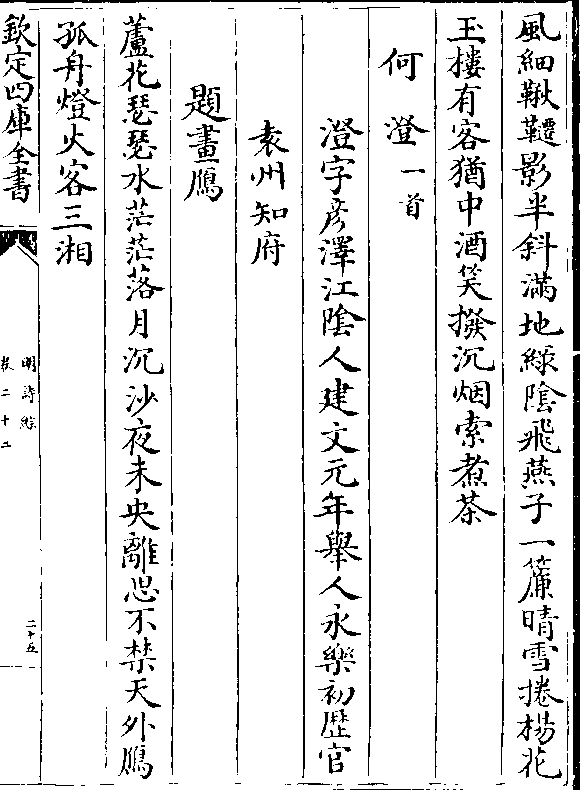 風細鞦韆影半斜滿地綠陰飛燕子一簾晴雪捲楊花
玉樓有客猶中酒笑撥沉烟索煮茶
何澄一首
澄字彦澤江陰人建文元年舉人永樂初歴官
袁州知府
題畫鴈
蘆花瑟瑟水茫茫落月沉沙夜未央離思不禁天外鴈
孤舟燈火客三湘
欽定四庫全書
明詩綜
卷二十二
二十五